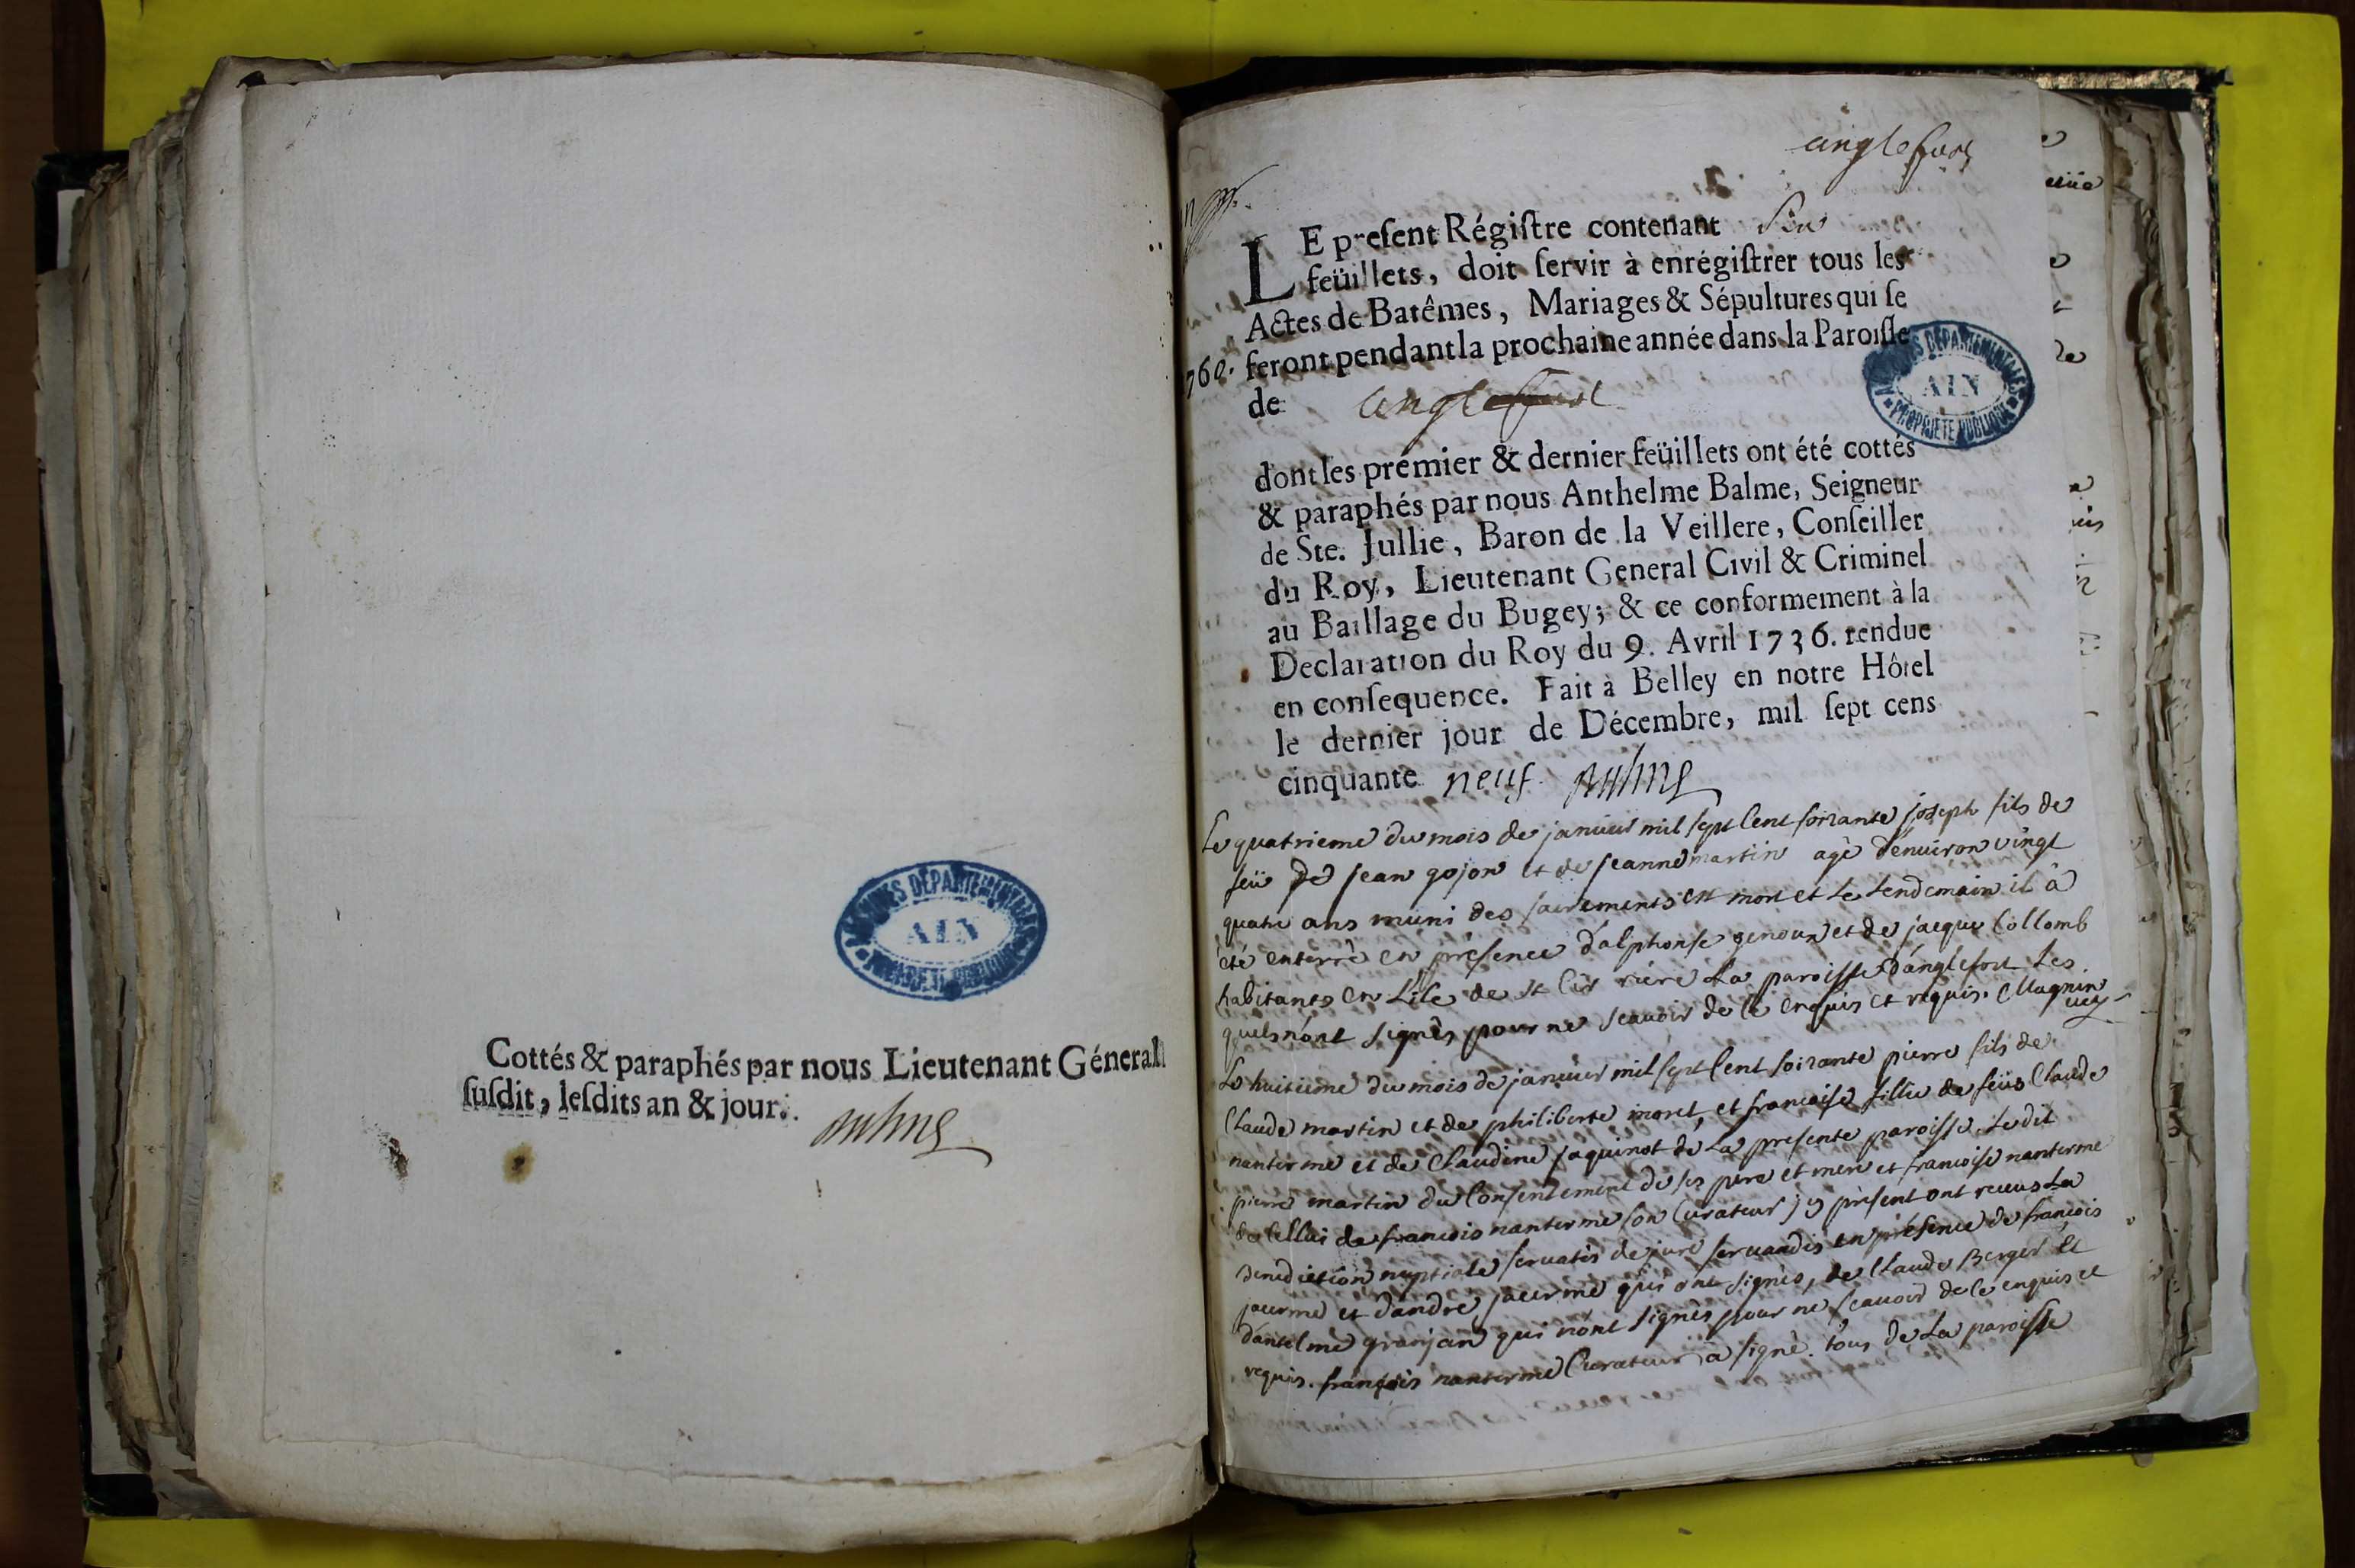 ARCHIVES DÉPARTEMENTALES
AIN
PROPRIÉTÉ PUBLIQUE
Cottés & paraphés par nous Lieutenant Géneral
ſuſdit, leſdits an & jour.
anglefort
LE preſent Régiſtre contenant
feüillets, doit ſervir à enrégiſtrer tous les
Actes de Batêmes, Mariages & Sépultures qui ſe
760. feront pendant la prochaine année dans la Paroiſſe
de anglefort
ARCHIVES DÉPARTEMENTALES
AIN
PROPRIÉTÉ PUBLIQUE
dont les prémier & dernier feüillets ont été cottés
& paraphés par nous Anthelme Balme, Seigneur
de Ste. Jullie, Baron de la Veillere, Conſeiller
du Roy, Lieutenant General Civil & Criminel
au Baillage du Bugey; & ce conformement à la
Declaration du Roy du 9. Avril 1736. rendue
en conſequence. Fait à Belley en notre Hôtel
le dernier jour de Décembre, mil ſept cens
cinquante neuf.
Le quatrieme du mois de janvier mil sept Cent soixante joseph fils de
feü de jean gojon et de jeanne martin agè d'enuiron vingt
quatre ans muni des sacrements est mort et Le Lendemain il à
èté enterrè en prèsence d'alphonse genoux et de jacque Collomb
habitants en L'ile de st Cir riere La paroisse d'anglefort Les
quels n'ont signès pour ne sçauoir de ce enquis et requis. Magnin
Le huitieme du mois de januier mil sept Cent soixante pierre fils de
Claude martin et de philiberte moret, et francoise fillie de feüs Claude
nanterme et de Claudine jaquinot de La presente paroisse. Ledit
pierre martin du Consentement de ses pere et mere et francoise nanterme
de Cellui de francois nanterme son Curateur j y prèsent ont recus La
Benediction nuptiale seruatis de jure seruandis en prèsence de francois
jacerme et d'andrè jacerme qui ont signès, de Claude Berger et
d'antelme granjan qui n'ont signès pour ne sçauoir de ce enquis et
requis. françois nanterme Curateur a signè. tous de La paroisse